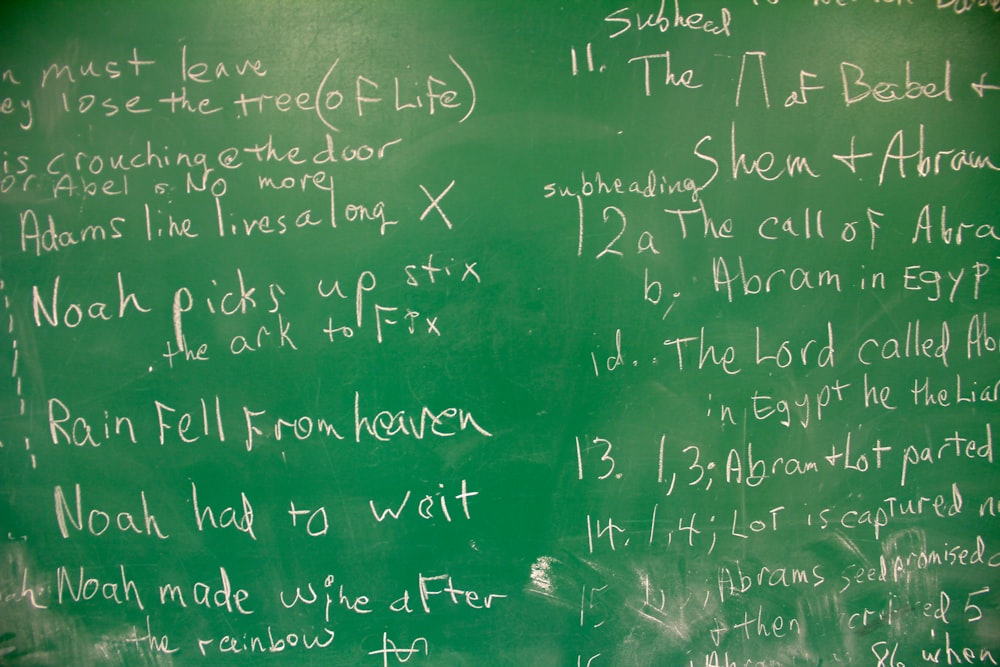 n must leave
ey lose the tree (of Life)
is crouching @ the door
or Abel is No more
Adams line lives along X
Noah picks up stix
the ark to Fix
Rain Fell From heaven
Noah had to wait
h Noah made wine after
the rainbow
Subhead
11. The Π of Babel +
Shem + Abram
subheading
12a The call of Abra
b. Abram in Egyp
id.. The Lord called Ab
in Egypt he the Liar
13. 1,3; Abram + Lot parted
14. 1,4; Lot is captured n
15 Abrams seed promised
+ then 5
Abra 86 when